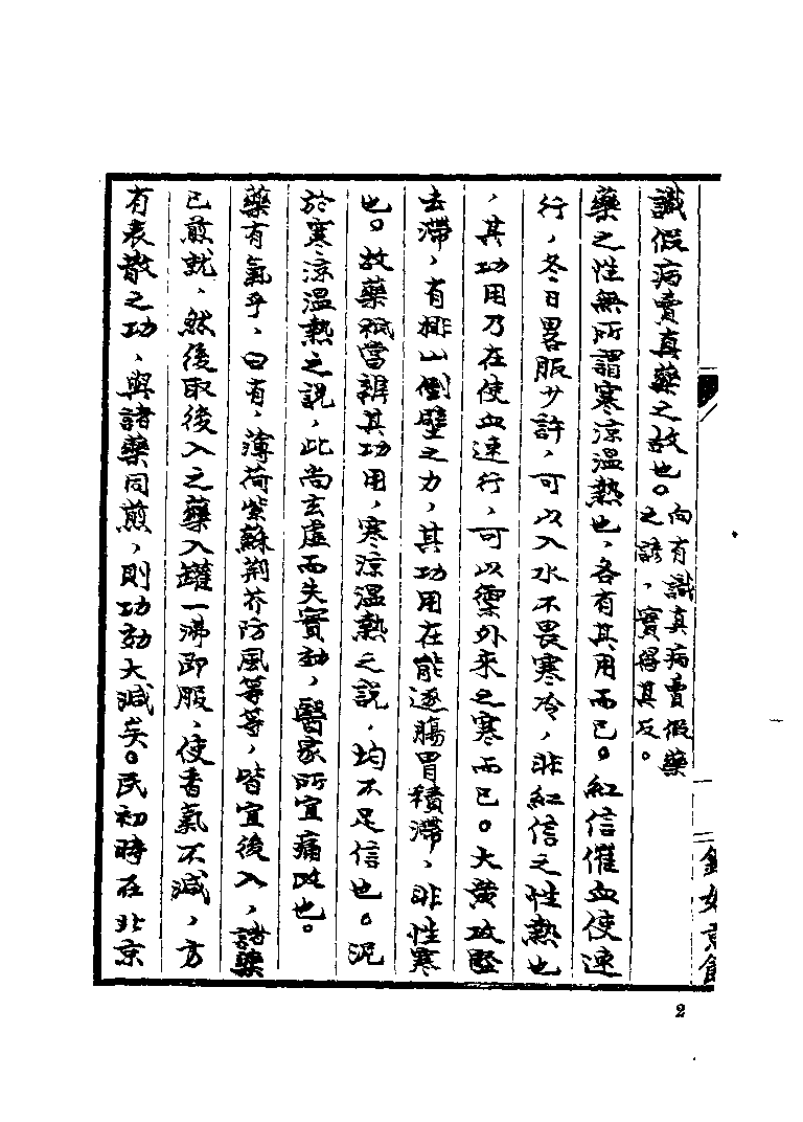 識假病賣真藥之故也。向有識真病賣假藥
之諺，實得其反。
藥之性無所謂寒涼溫熱也，各有其用而已。紅信催血使速
行，冬日畧服少許，可以入水不畏寒冷，非紅信之性熱也
，其功用乃在使血速行，可以禦外來之寒而已。大黃攻堅
去滯，有排山倒壁之力，其功用在能逐腸胃積滯，非性寒
也。故藥祇當辨其功用，寒涼溫熱之說，均不足信也。泥
於寒涼溫熱之說，此尚玄虛而失實効，醫家所宜痛改也。
藥有氣乎，曰有，薄荷紫蘇荆芥防風等等，皆宜後入，諸藥
已煎就，然後取後入之藥入罐一沸即服，使香氣不減，方
有表散之功，與諸藥同煎，則功効大減矣。民初時在北京
2